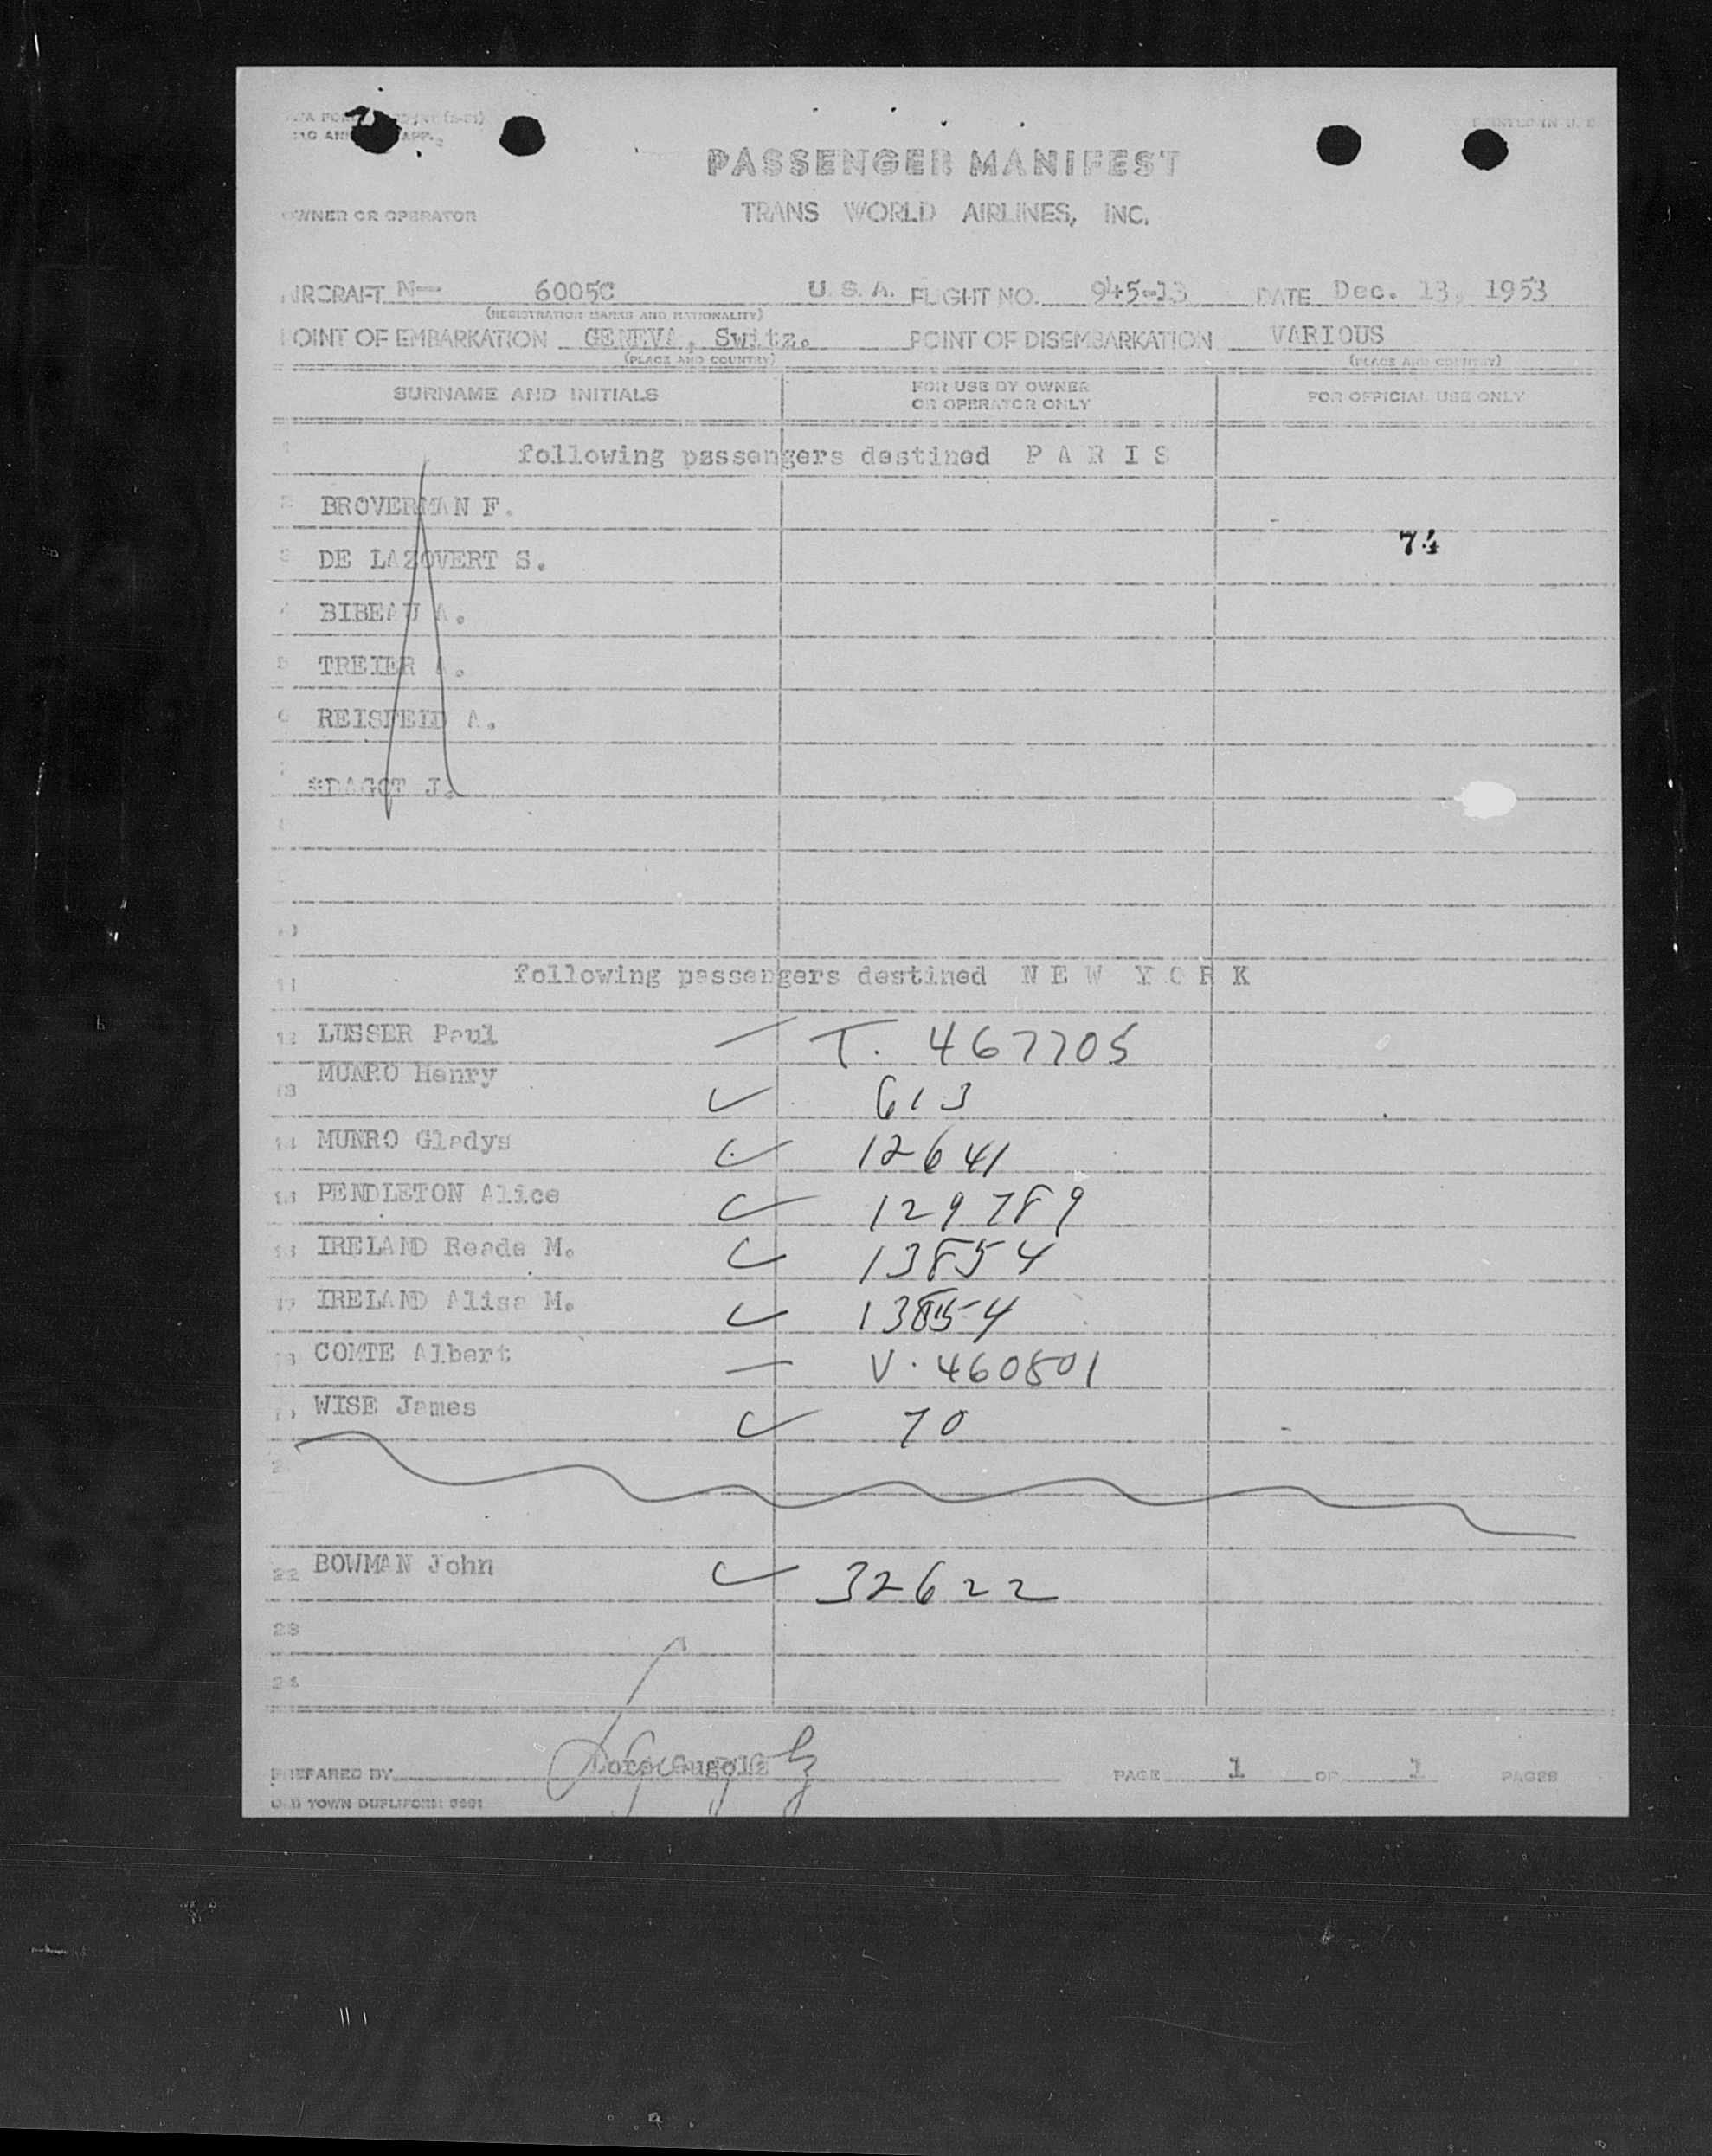 PASSENGER MANIFEST
OWNER OR OPERATOR TRANS WORLD AIRLINES, INC.
AIRCRAFT N-- 6005C U. S. A. FLIGHT NO. 945-13 DATE Dec. 13, 1953
(REGISTRATION MARKS AND NATIONALITY)
POINT OF EMBARKATION GENEVA, Switz. POINT OF DISEMBARKATION VARIOUS
(PLACE AND COUNTRY) (PLACE AND COUNTRY)
SURNAME AND INITIALS FOR USE BY OWNER OR OPERATOR ONLY FOR OFFICIAL USE ONLY
following passengers destined P A R I S
BROVERMAN F.
74
DE LAZOVERT S.
BIBEAU A.
TREIER A.
REISFELD A.
*DAGOT J.
following passengers destined N E W Y O R K
11
12 LUSSER Paul T. 467705
13 MUNRO Henry 613
14 MUNRO Gladys 12641
15 PENDLETON Alice 129789
16 IRELAND Reade M. 13854
17 IRELAND Alisa M. 13854
COMTE Albert V. 460801
WISE James 70
22 BOWMAN John 32622
23
24
PREPARED BY PAGE 1 OF 1 PAGES
OLD TOWN DUPLIFORM